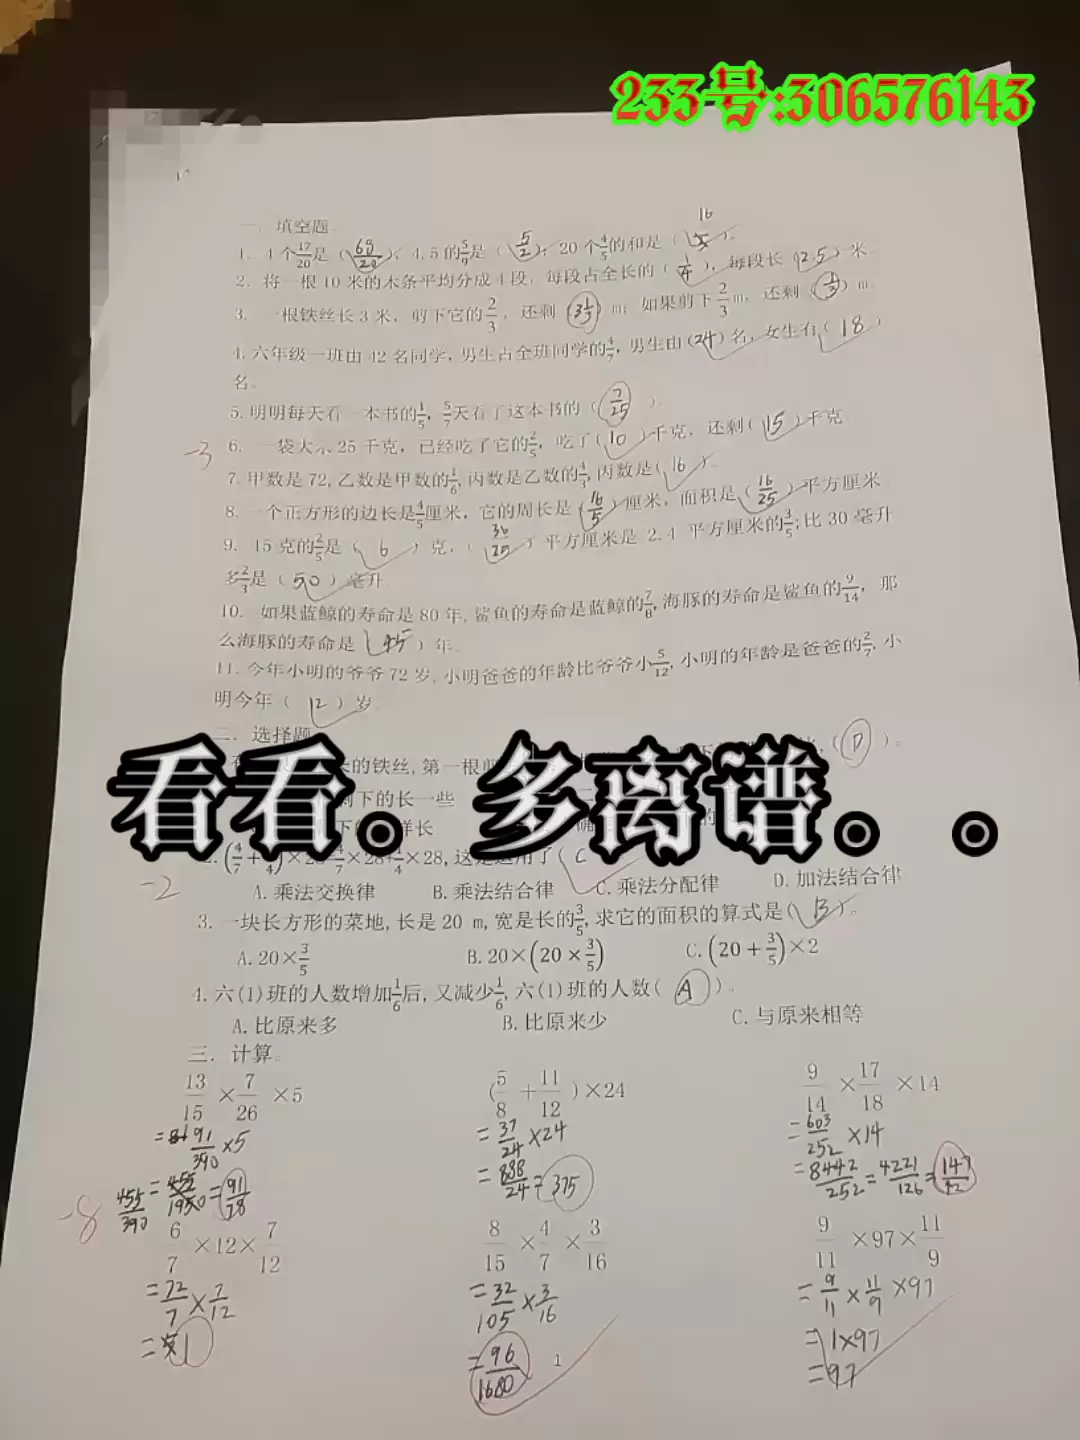 233号:306576143
一. 填空题。
16
1. 4个17/20是(68/20), 4.5的5/9是(5/2); 20个4/5的和是( )。
2. 将一根10米的木条平均分成4段, 每段占全长的(1/4), 每段长(2.5)米。
3. 一根铁丝长3米, 剪下它的2/3, 还剩( )m; 如果剪下2/3m, 还剩( )m
4.六年级一班由42名同学, 男生占全班同学的4/7, 男生由(24)名, 女生有(18)
名。
5.明明每天看一本书的1/5, 5/7天看了这本书的(7/25)。
-3
6. 一袋大 25千克, 已经吃了它的2/5, 吃了(10)千克, 还剩(15)千克
7.甲数是72,乙数是甲数的1/6,丙数是乙数的4/3,丙数是(16)。
8. 一个正方形的边长是4/5厘米, 它的周长是(16/5)厘米, 面积是(16/25)平方厘米
9. 15克的2/5是(6)克, ( )平方厘米是 2.4 平方厘米的3/5;比30毫升
多2/3是(50)毫升
10. 如果蓝鲸的寿命是80年,鲨鱼的寿命是蓝鲸的7/8,海豚的寿命是鲨鱼的9/14, 那
么海豚的寿命是(45)年。
11.今年小明的爷爷72岁,小明爸爸的年龄比爷爷小5/12,小明的年龄是爸爸的2/7,小
明今年(12)岁
二. 选择题
的铁丝,第一根剪 (D)。
看看。多离谱。。
剩下的长一些
样长
×28,这是运用了(C
-2
A.乘法交换律 B.乘法结合律 C.乘法分配律 D.加法结合律
3. 一块长方形的菜地,长是20 m,宽是长的3/5,求它的面积的算式是(B)。
A.20×3/5 B.20×(20×3/5) C.(20+3/5)×2
4.六(1)班的人数增加1/6后,又减少1/6,六(1)班的人数(A)。
A.比原来多 B.比原来少 C.与原来相等
三. 计算。
13/15×7/26×5 (5/8+11/12)×24 9/14×17/18×14
=91/390×5 =37/24×24 =603/252×14
455/390 =455/1950=91/78 =888/24=375 =8442/252=4221/126=147/42
-8
6/7×12×7/12 8/15×4/7×3/16 9/11×97×11/9
=72/7×7/12 =32/105×3/16 =9/11×11/9×97
=1 =96/1680 =1×97
1
=97